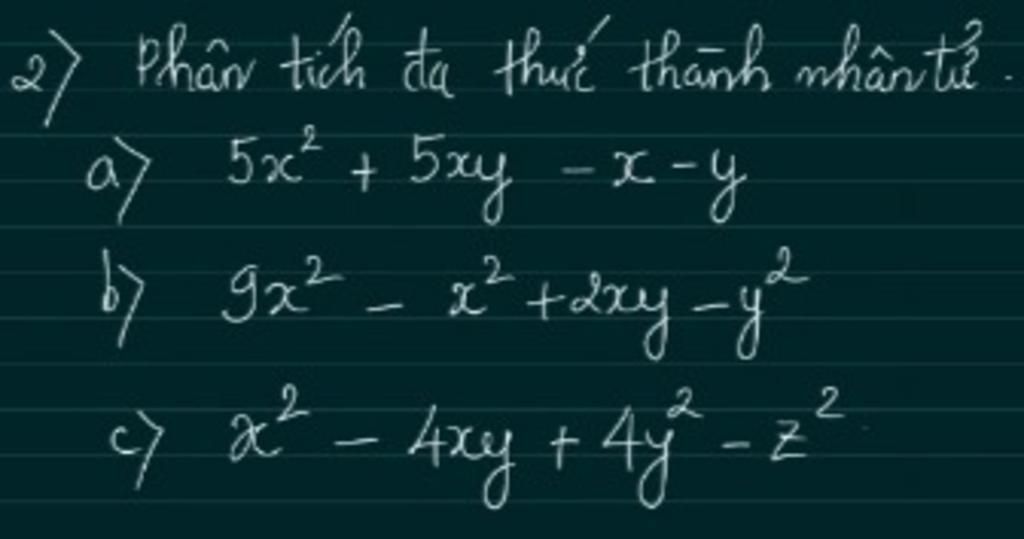 2) Phân tích đa thức thành nhân tử.
a) 5x² + 5xy - x - y
b) 9x² - x² + 2xy - y²
c) x² - 4xy + 4y² - z²